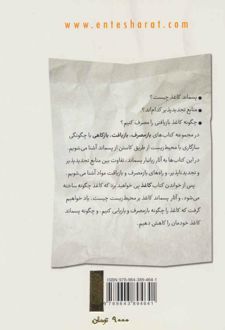 www.entesharat.com
• پسماند کاغذ چیست؟
• منابع تجدیدپذیر کدام‌اند؟
• چگونه کاغذ بازیافتی را مصرف کنیم؟
در مجموعه کتاب‌های بازمصرف، بازیافت، بازکاهی با چگونگی
سازگاری با محیط زیست از طریق کاستن از پسماند آشنا می‌شویم.
در این کتاب‌ها به آثار زیانبار پسماند، تفاوت بین منابع تجدیدپذیر
و تجدیدناپذیر، و راه‌های بازمصرف و بازیافت مواد آشنا می‌شویم.
پس از خواندن کتاب کاغذ پی خواهید برد که کاغذ چگونه ساخته
می‌شود، و آثار پسماند کاغذ بر محیط زیست چیست، یاد خواهیم
گرفت که کاغذ را چگونه بازمصرف و بازیابی کنیم. و چگونه پسماند
کاغذ خودمان را کاهش دهیم.
ISBN: 978-964-389-464-1
9789643894641
۹۰۰۰ تومان